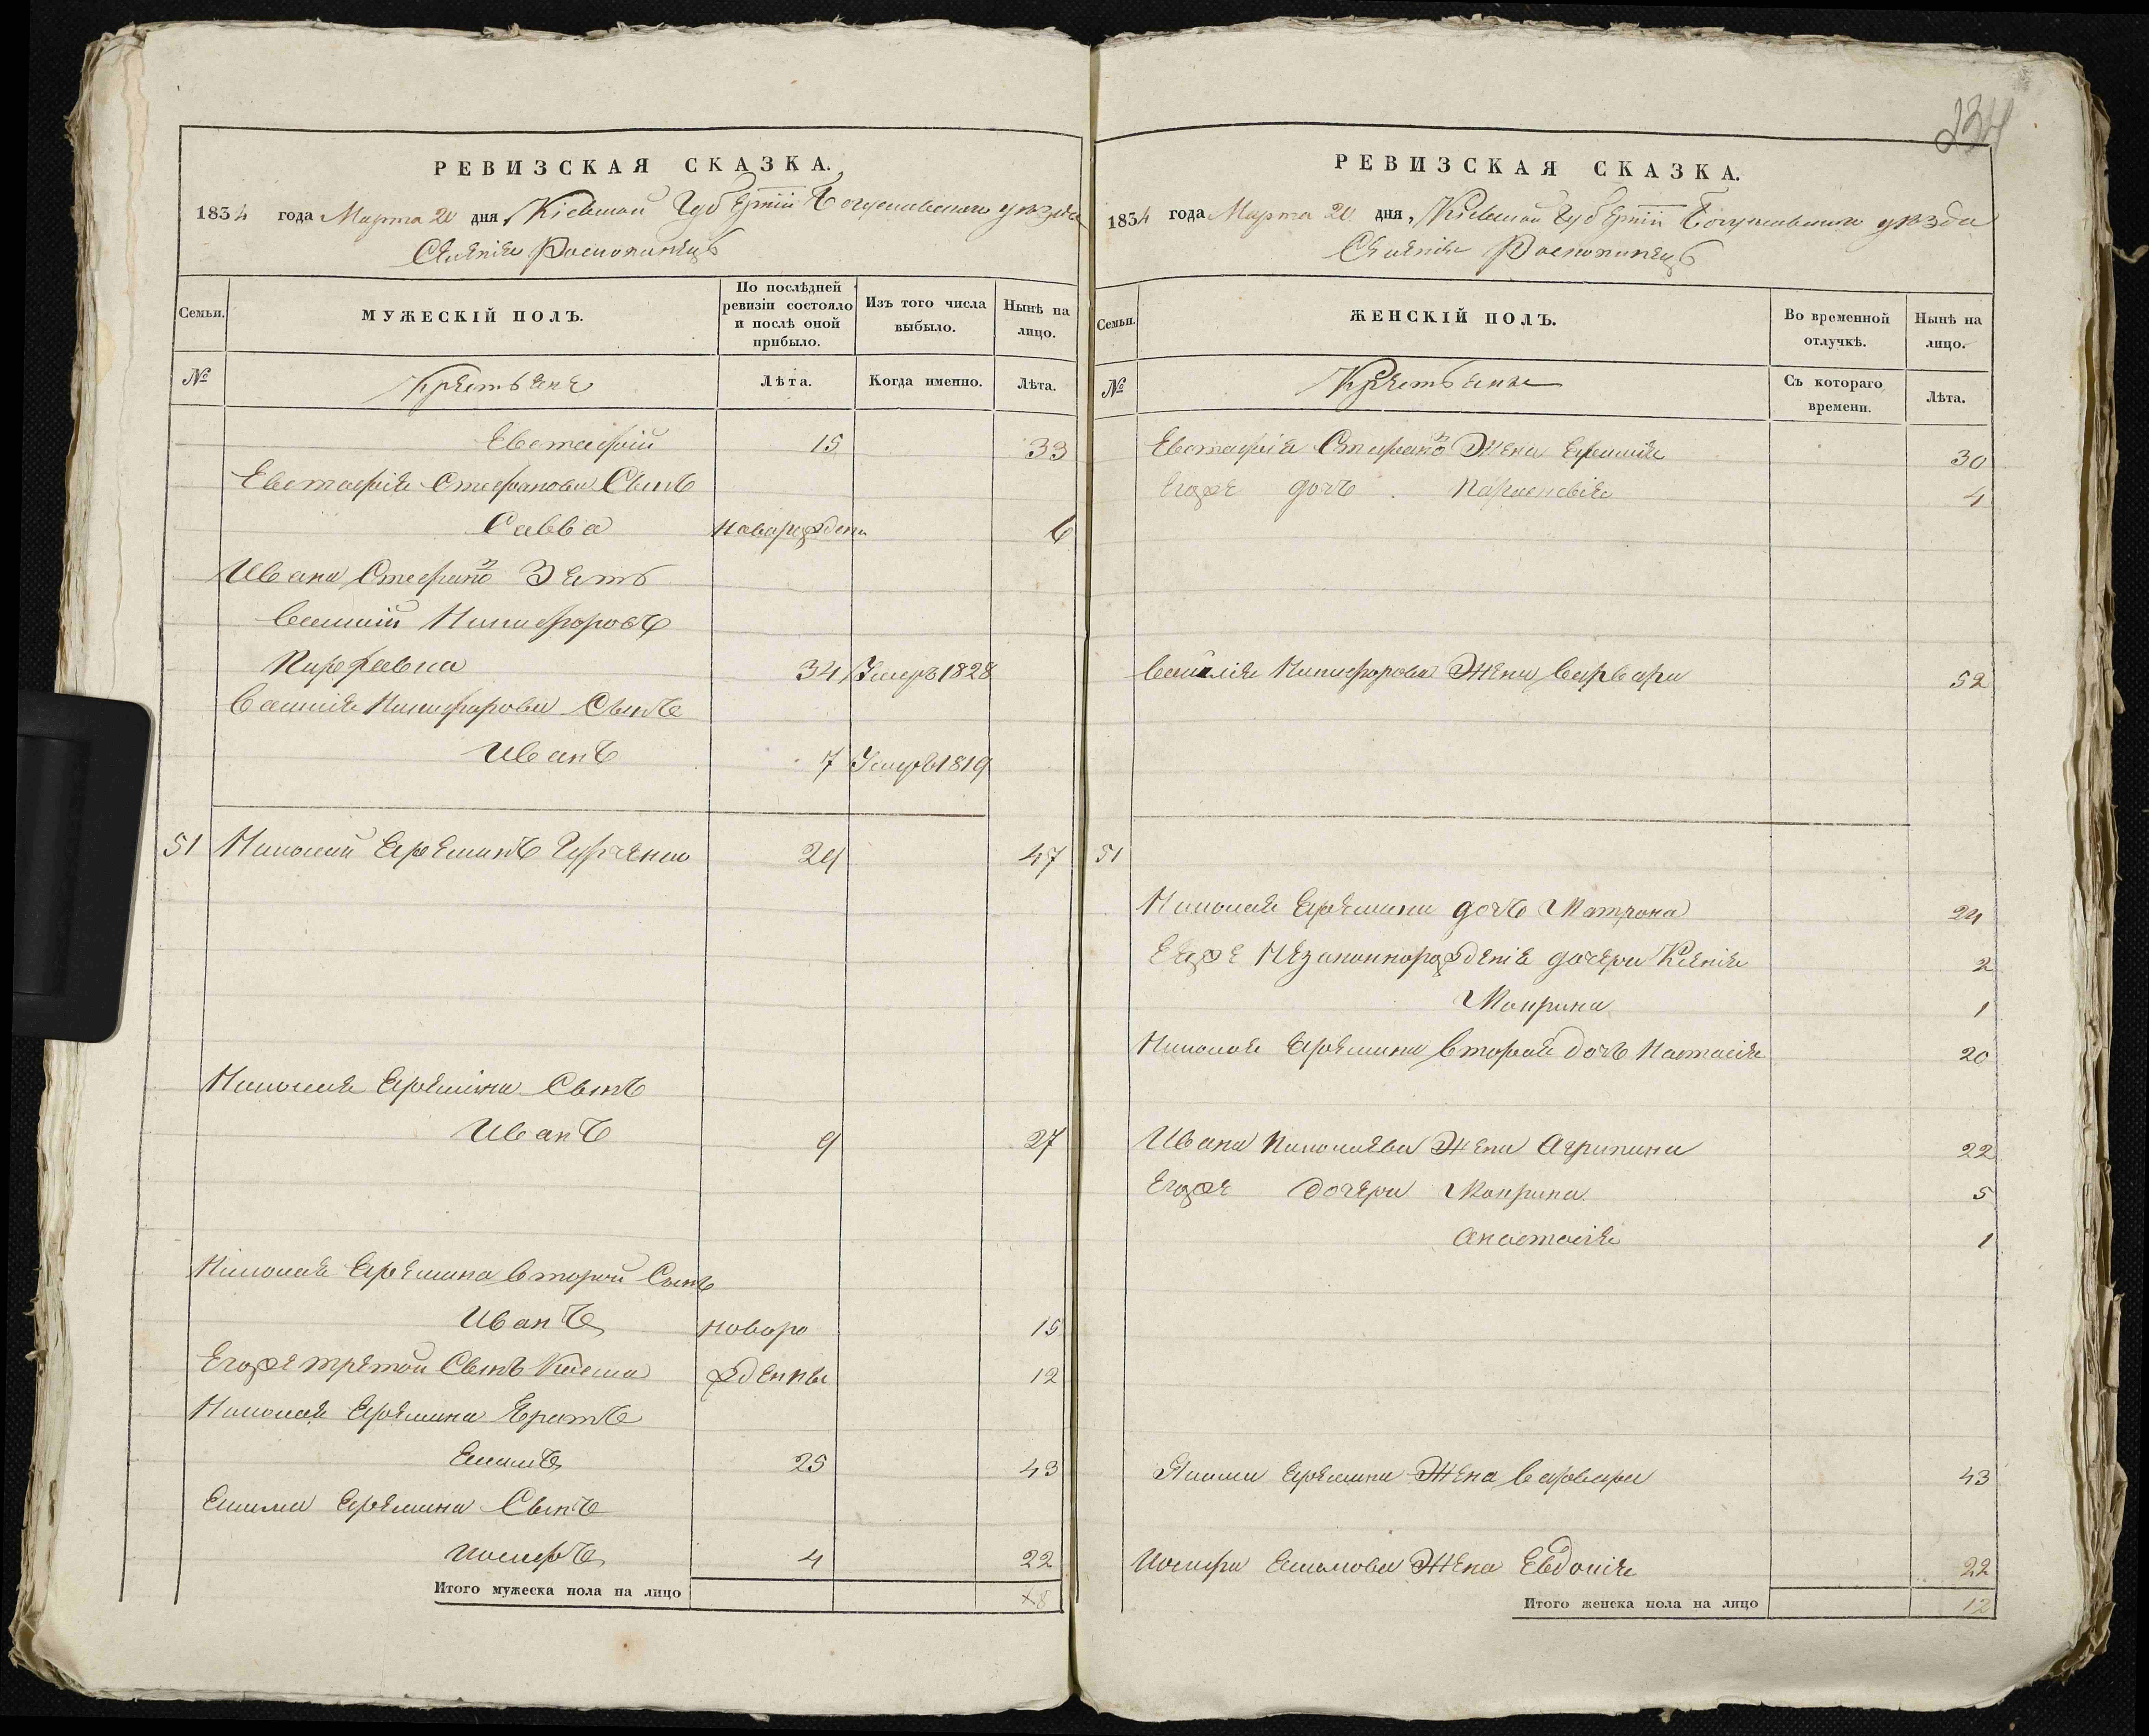 РЕВИЗСКАЯ СКАЗКА.
1834 года Марта 20 дня, Кіевской Губерніи Богуславскаго уѣзда
Селенія Роскопинецъ
Семьи. МУЖЕСКІЙ ПОЛЪ. По послѣдней ревизіи состояло и послѣ оной прибыло. Изъ того числа выбыло. Нынѣ на лицо.
№ Крестьяне Лѣта. Когда именно. Лѣта.
Евстафій 15 33
Евстафія Стефанова Сынъ
Савва новорожденъ 6
Ивана Стефано Зять
Василій Никифоровъ
34 Умеръ 1828
Василія Никифорова Сынъ
Иванъ 7 Умеръ 1819
51 Николай Ереминъ Гурченко 29 47
Николая Еремина Сынъ
Иванъ 9 27
Николая Еремина второй Сынъ
Иванъ новоро 15
Егоже третой Сынъ 12
жденны
Николая Еремина Братъ
Екимъ 25 43
Екима Еремина Сынъ
Иосифъ 4 22
Итого мужеска пола на лицо 8
234
РЕВИЗСКАЯ СКАЗКА.
1834 года Марта 20 дня, Кіевской Губерніи Богуславскаго уѣзда
Селенія Роскопинецъ
Семьи. ЖЕНСКІЙ ПОЛЪ. Во временной отлучкѣ. Нынѣ на лицо.
№ Крестьянки Съ котораго времени. Лѣта.
Евстафія Стефано Жена 30
Егоже дочь Параскевія 4
Василія Никифорова Жена Варвара 52
51
Николая Еремина дочь Матрона 24
Еяже Незаконнорожденіе дочери Ксенія 2
Мокрина 1
Николая Еремина вторая дочь Настасія 20
Ивана Николаева Жена Агрипина 22
Егоже дочери Мокрина 5
Анастасія 1
Якима Еремина Жена Варвара 43
Иосифа Екимова Жена Евдокія 22
Итого женска пола на лицо 12